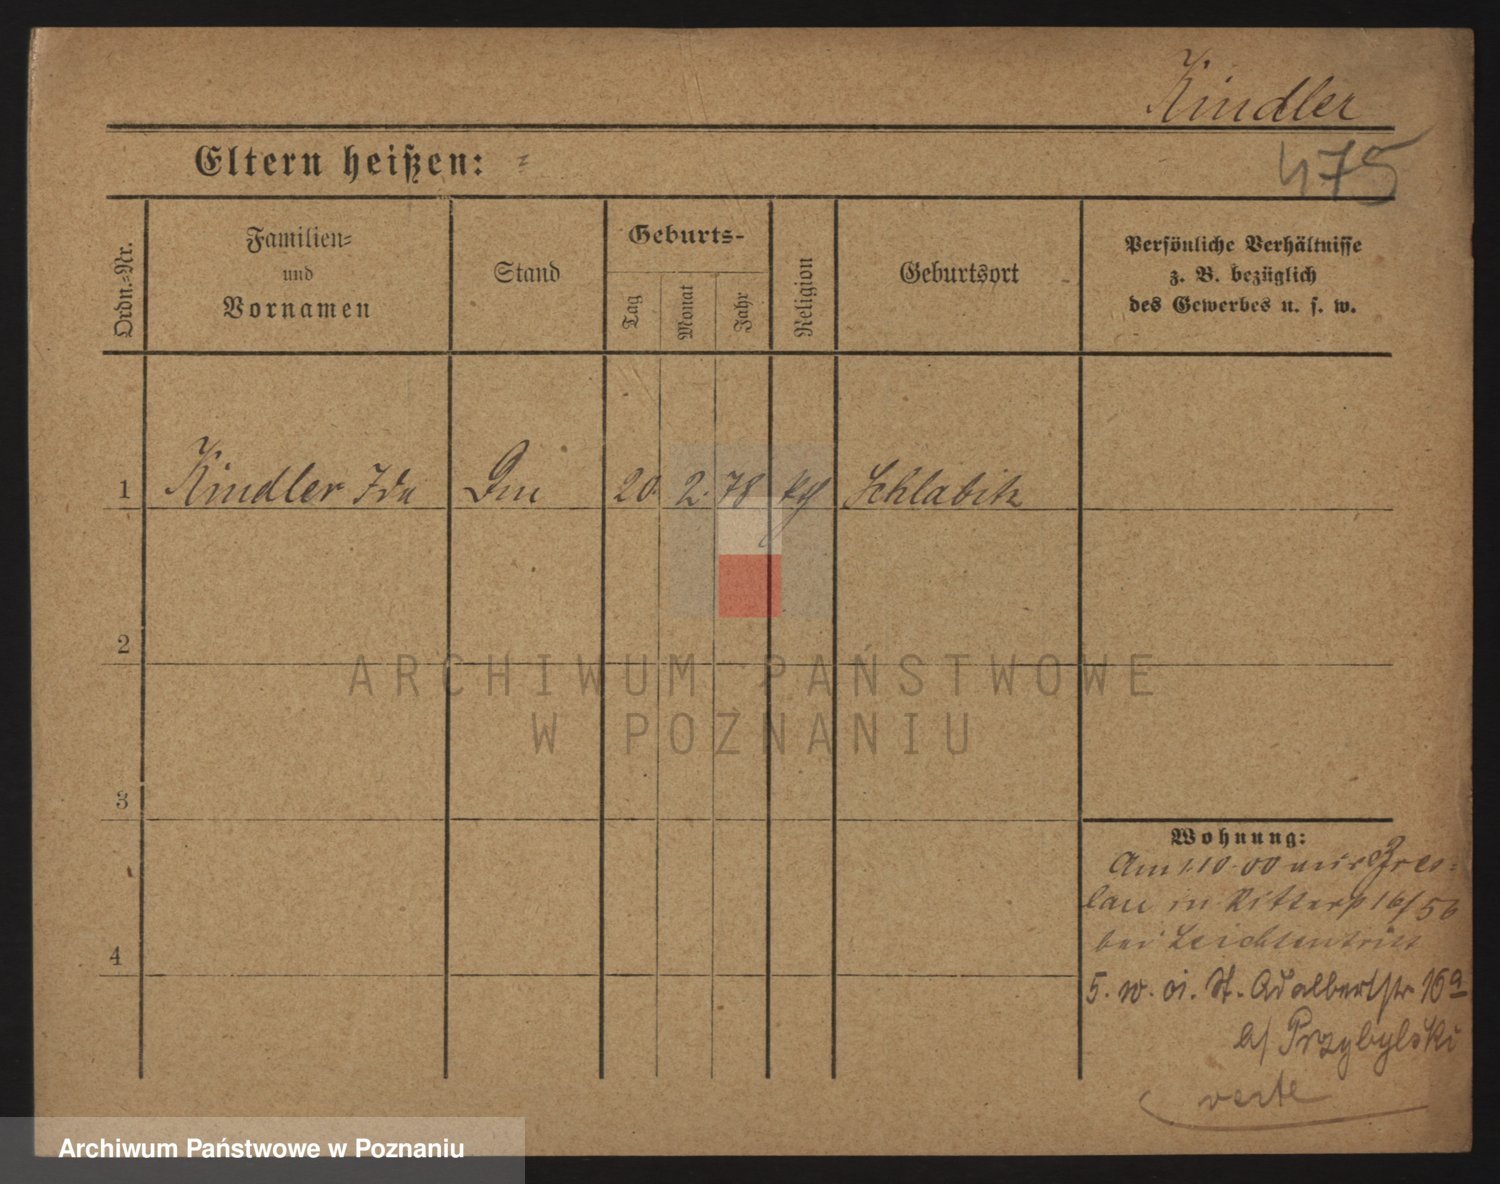 Kindler
475
Eltern heißen:
Ordn.-Nr.
Familien-
und
Vornamen
Stand
Geburts-
Tag
Monat
Jahr
Religion
Geburtsort
Persönliche Verhältnisse
z. B. bezüglich
des Gewerbes u. s. w.
1 Kindler Ida 20. 2. 78 Schlabitz
2
3
4
Wohnung:
Am 1.10.00 aus Bres-
lau in Ritterst 16/
bei Leichtentritt
5. St. Adalbertstr 16a
b/ Przybylski
verte
ARCHIWUM PAŃSTWOWE
W POZNANIU
Archiwum Państwowe w Poznaniu